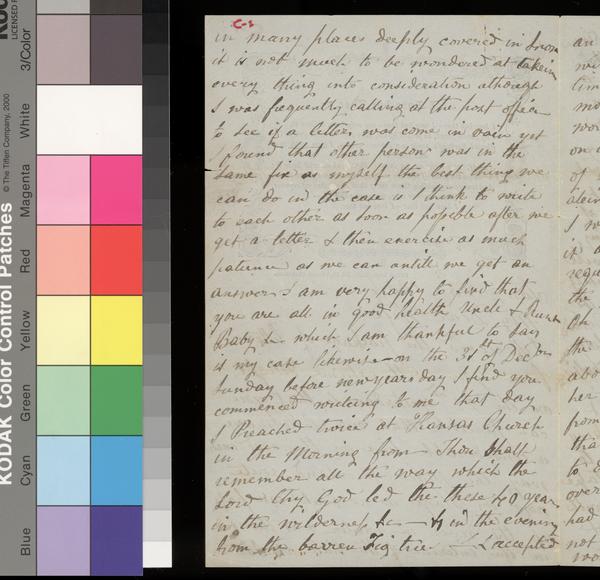 C-2
in many places deeply covered in Snow
it is not much to be wondered at takein
every thing into consideration although
I was frequently calling at the post office
to see if a letter was come in vain yet
I found that other person was in the
same fix as myself the best thing we
can do in the case is I think to write
to each other as soon as possible after we
get a letter & then exercise as much
patience as we can untill we get an
answer I am very happy to find that
you are all in good health Uncle &
Baby &c which I am thankful to say
is my case likewise - on the 31st of Decbr
Sunday before newyearsday I find you
commenced writeing to me that day
I Preached twice at Kansas Church
in the Morning from - Thou Shalt
remember all the way which the
Lord thy God led the these 40 years
in the wilderness &c - & in the evening
from the barren Fig tree. - I accepted
an
tim
on
of
I w
the
Oh
the
abo
her
from
tha
to
over
had
not
KODAK Color Control Patches
© The Tiffen Company, 2000
LICENSED
Blue
Cyan
Green
Yellow
Red
Magenta
White
3/Color